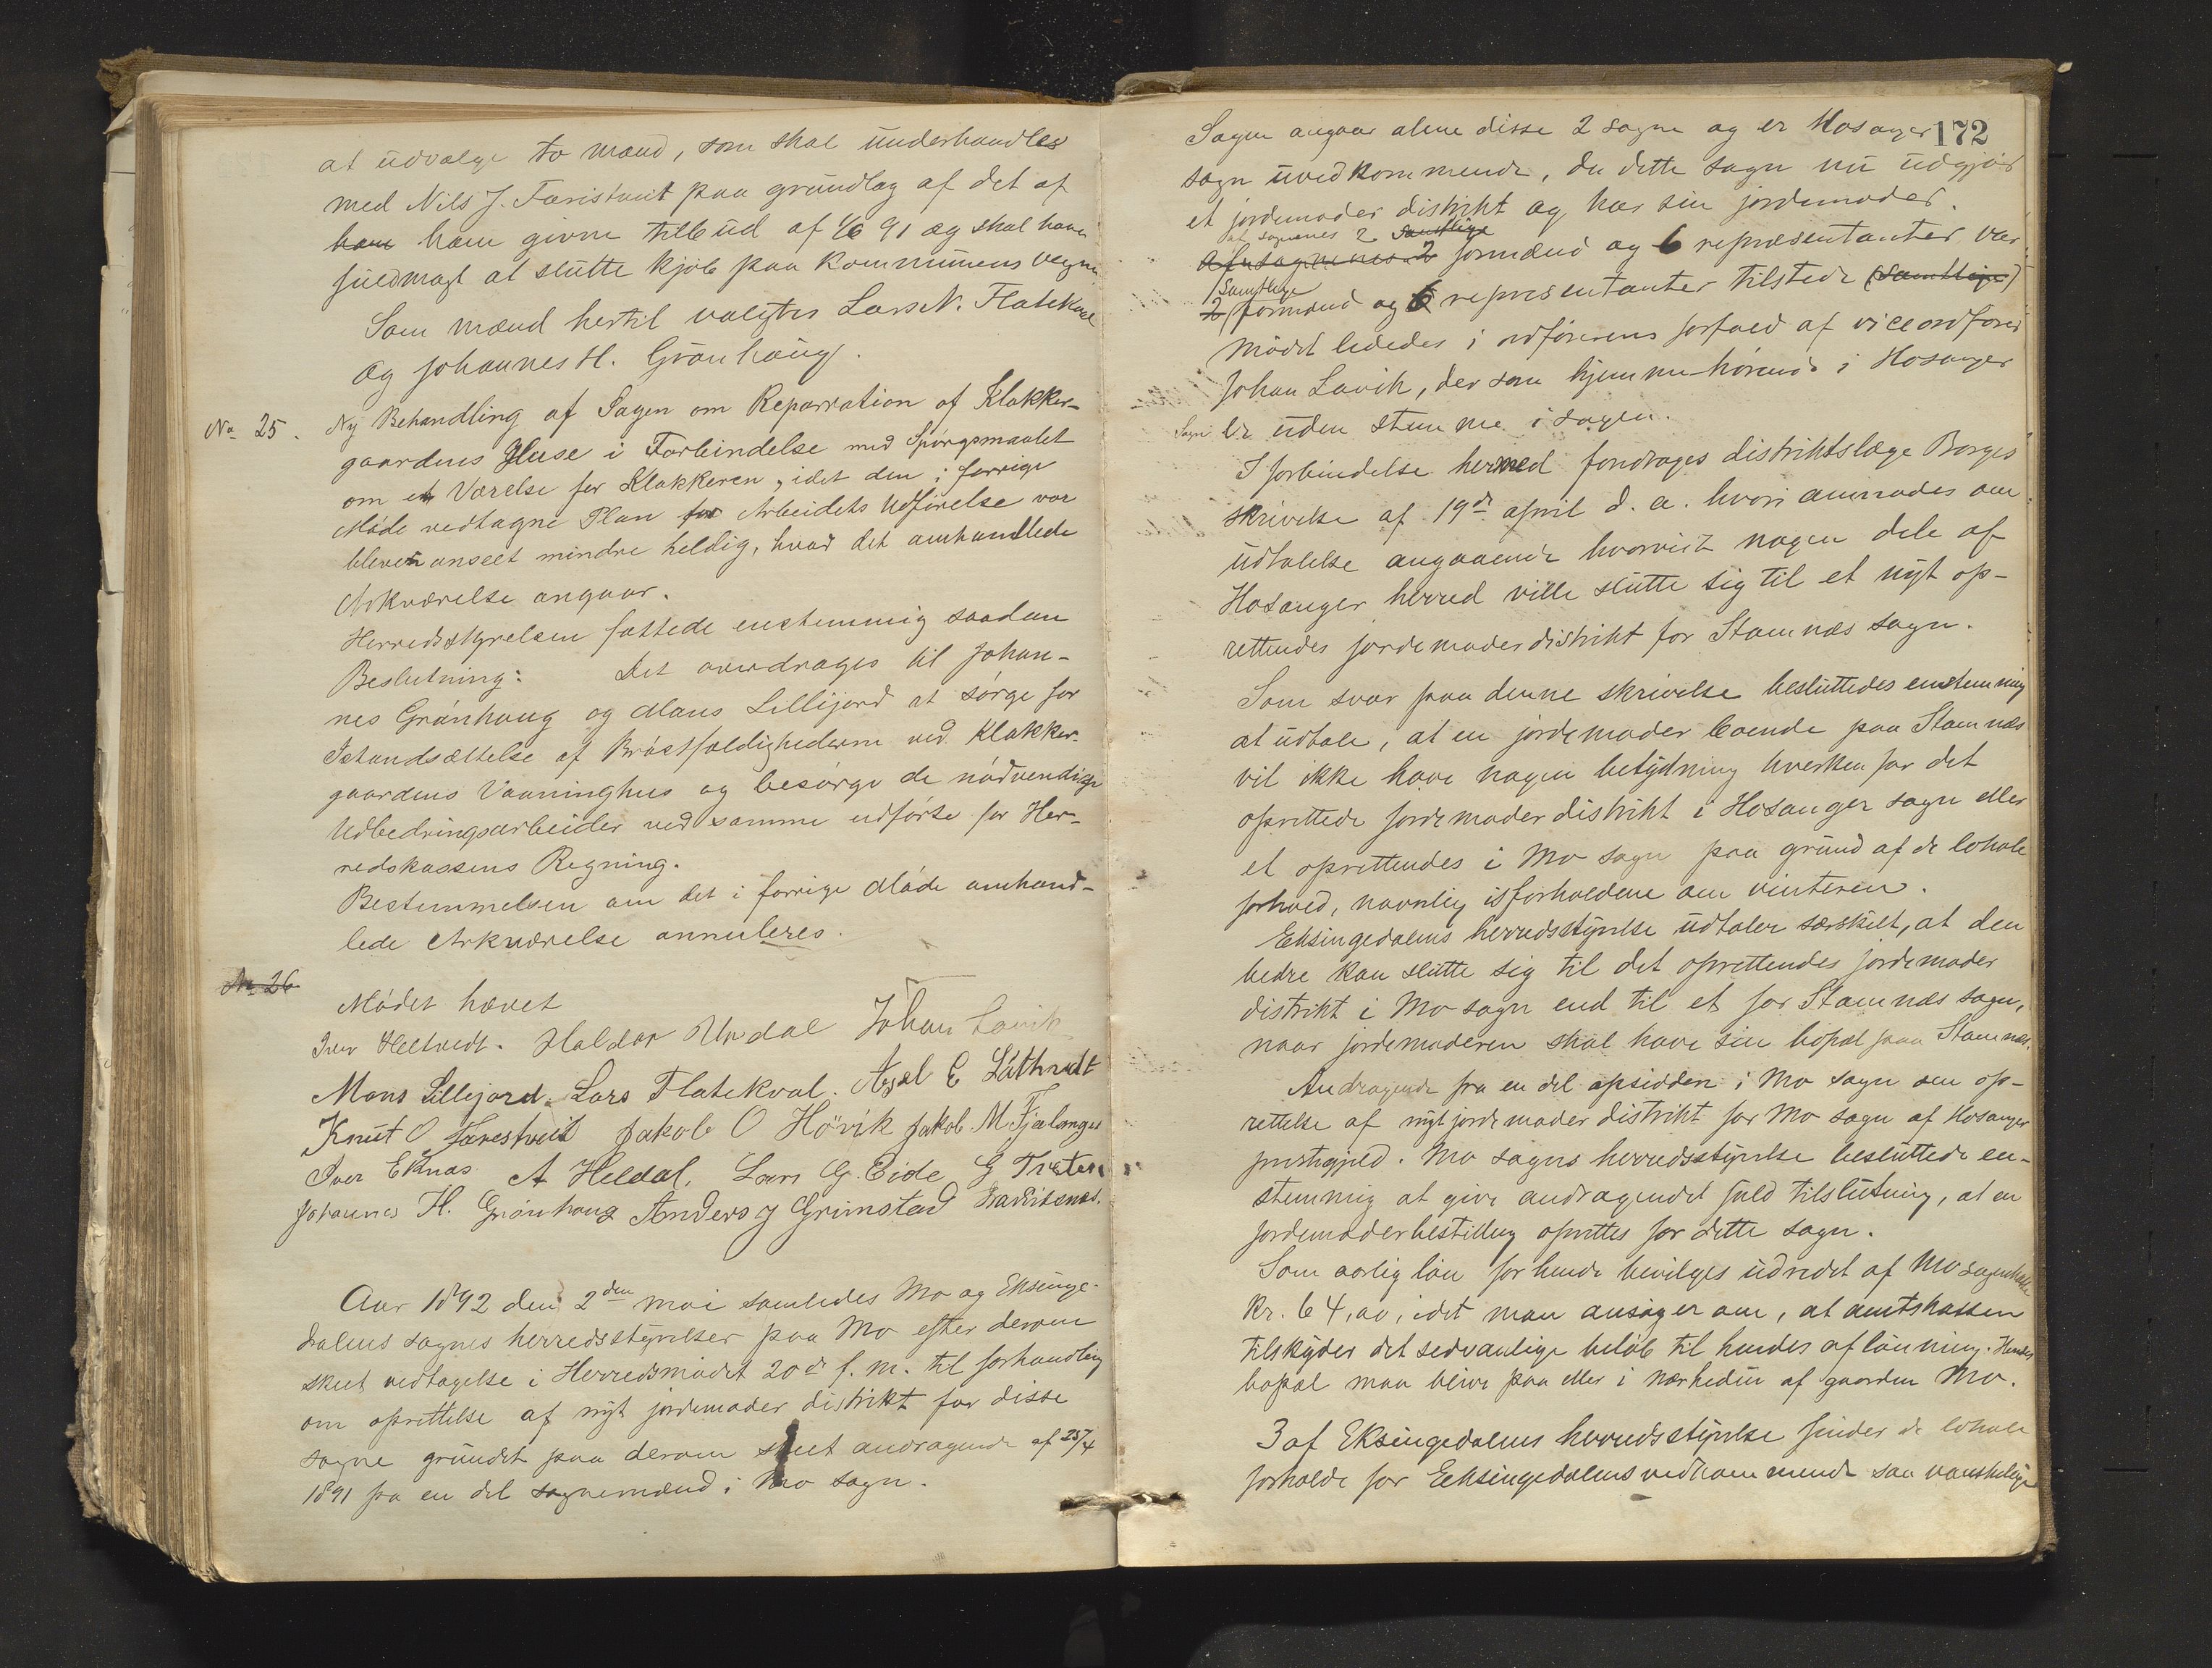 at udvælge to mænd, som skal underhandles
med Nils J. Færistveit paa grundlag af det af
ham ham givne tilbud af 1/6 91 og skal have
fuldmagt at slutte kjøb paa kommunens vegne
Som mænd hertil valgtes Lars N. Flatekval
og Johannes H. Grønhaug.
No 25. Ny Behandling af Sagen om Reparation af Klokker-
gaardens Huse i Forbindelse med Spørgsmaalet
om et Værelse for Klokkeren, idet den i forrige
Møde vedtagne Plan for Arbeidets Udførelse var
bleven anseet mindre heldig, hvad det omhandlede
Arkværelse angaar.
Herredsstyrelsen fattede enstemmig saadan
Beslutning: Det overdrages til Johan-
nes Grønhaug og Mons Lillijord at sørge for
Istandsættelse af Brøstfældighederne ved Klokker-
gaardens Vaaninghus og besørge de nødvendige
Udbedringsarbeider ved samme udførte for Her-
redskassens Regning.
Bestemmelsen om det i forrige Møde omhand-
lede Arkværelse annuleres.
No 26
Mødet hævet
Iver Heltvedt. Haldor Urdal Johan Lavik
Mons Lillejord. Lars Flatekval. Axel E Låthvedt
Knut O Farestveit Jakob O Høvik Jakob M. Fjelanger
Iver Eknæs A Heldal, Lars G. Eide G Træten
Johannes H. Grønhaug Anders J Grimstad
Aar 1892 den 2den mai samledes Mo og Eksinge-
dalens sognes herredsstyrelser paa Mo efter derom
skeet vedtagelse i Herredsmødet 20de f. m. til forhandling
om oprettelse af nyt jordemoder distrikt for disse
sogne grundet paa derom skeet andragende af 25/4
1891 fra en del sognemænd i Mo sogn.
172
Sagen angaar alene disse 2 sogne og er Hosanger
sogn uvedkommende, da dette sogn nu udgjør
et jordemoder distrikt og har sin jordemoder.
af sognenes 2 samtlige
af sognenes 2 formænd og 6 repræsentanter var
Samtlige
2 formænd og 6 repræsentanter tilstede (samtlige)
Mødet lededes i ordførerens forfald af viceordfører
Johan Lavik, der som hjemmehørende i Hosanger
Sogn er uden stemme i sagen.
I forbindelse hermed foredroges distriktslæge Borges
skrivelse af 19de april d. a. hvori anmodes om
udtalelse angaaende hvorvidt nogen dele af
Hosanger herred ville slutte sig til et nyt op-
rettendes jordemoderdistrikt for Stamnæs sogn.
Som svar paa denne skrivelse besluttedes enstemmig
at udtale, at en jordemoder boende paa Stamnæs
vil ikke have nogen betydning hverken for det
oprettede jordemoderdistrikt i Hosanger sogn eller
et oprettendes i Mo sogn paa grund af de lokale
forhold, navnlig isforholdene om vinteren.
Eksingedalens herredsstyrelse udtaler særskilt, at den
bedre kan slutte sig til det oprettendes jordemoder
distrikt i Mo sogn end til et for Stamnæs sogn,
naar jordemoderen skal have sin bopæl paa Stamnæs.
Andragende fra en del opsiddere i Mo sogn om op-
rettelse af nyt jordemoder distrikt for Mo sogn af Hosanger
prestegjeld. Mo sogns herredsstyrelse besluttede en-
stemmig at give andragendet fuld tilslutning, at en
jordemoderbestilling oprettes for dette sogn.
Som aarlig løn for hende bevilges udredet af Mo sognekasse
kr. 64,00, idet man ansøger om, at amtskassen
tilskyder det sedvanlige beløb til hendes aflønning. Hendes
bopæl maa blive paa eller i nærheden af gaarden Mo.
3 af Eksingedalens herredsstyrelse finder de lokale
forholde for Eeksingedalens vedkommende saa vanskelige